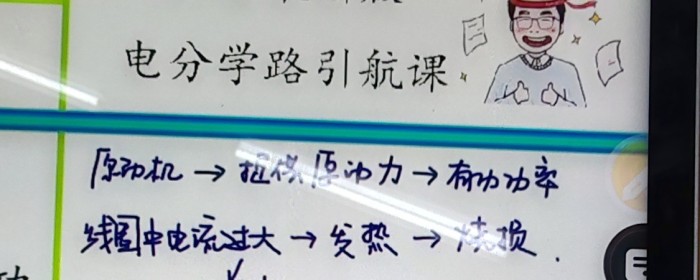 电分学路引航课
原动机→提供原动力→有功功率
线圈中电流过大→发热→烧损.